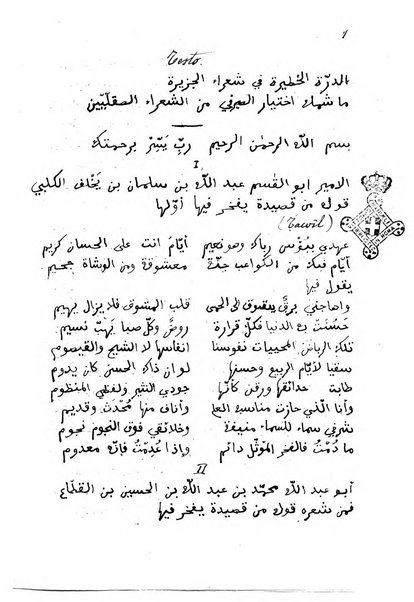 1
Testo.
الدرّة الخطيرة في شعراء الجزيرة
ما شمله اختيار الصيرفي من الشعراء الصقلبيّين
بسم اللّه الرحمٰن الرحيم ربِّ يَسِّر برحمتك
I
الامير ابو القسم عبد اللّه بن سلمان بن يَخْلف الكلبي
قوله من قصيدة يفخر فيها أوّلها
(Tawīl)
عهدي ببُؤْس رباك وهو نعيم أيّام انت على الحسان كريم
أيّام فيك من الكواعب جنّة معشوقة ومن الوشاة جحيم
يقول فيها
واهاجني برقٌ يشوق الى الحمى قلب المشوق فلا يزال يهيم
حَسُنَتْ به الدنيا فكلّ قرارة روضٌ وكلّ صبا يهبّ نسيم
تلك الرياض المحييات نفوسنا انفاسها لا الشيح والقيصوم
سقيا لأيّام الربيع وحسنها لو ان ذاك الحسن كان يدوم
طابة حدائقها ورقن كأنّها جودي النثير ولفظي المنظوم
وأنا الّذي حازت مناسبه العلى وأناف منها مُحْدَث وقديم
شرفي سماء للسماء منيفة وخلائقي فوق النجوم نجوم
ما دُمْتُ فالفخر المؤثّل دائم واذا عُدِمْتُ فإنّه معدوم
II
أبو عبد اللّه محمّد بن عبد اللّه بن الحسين بن القلّاع
فمن شعره قوله من قصيدة يفخر فيها